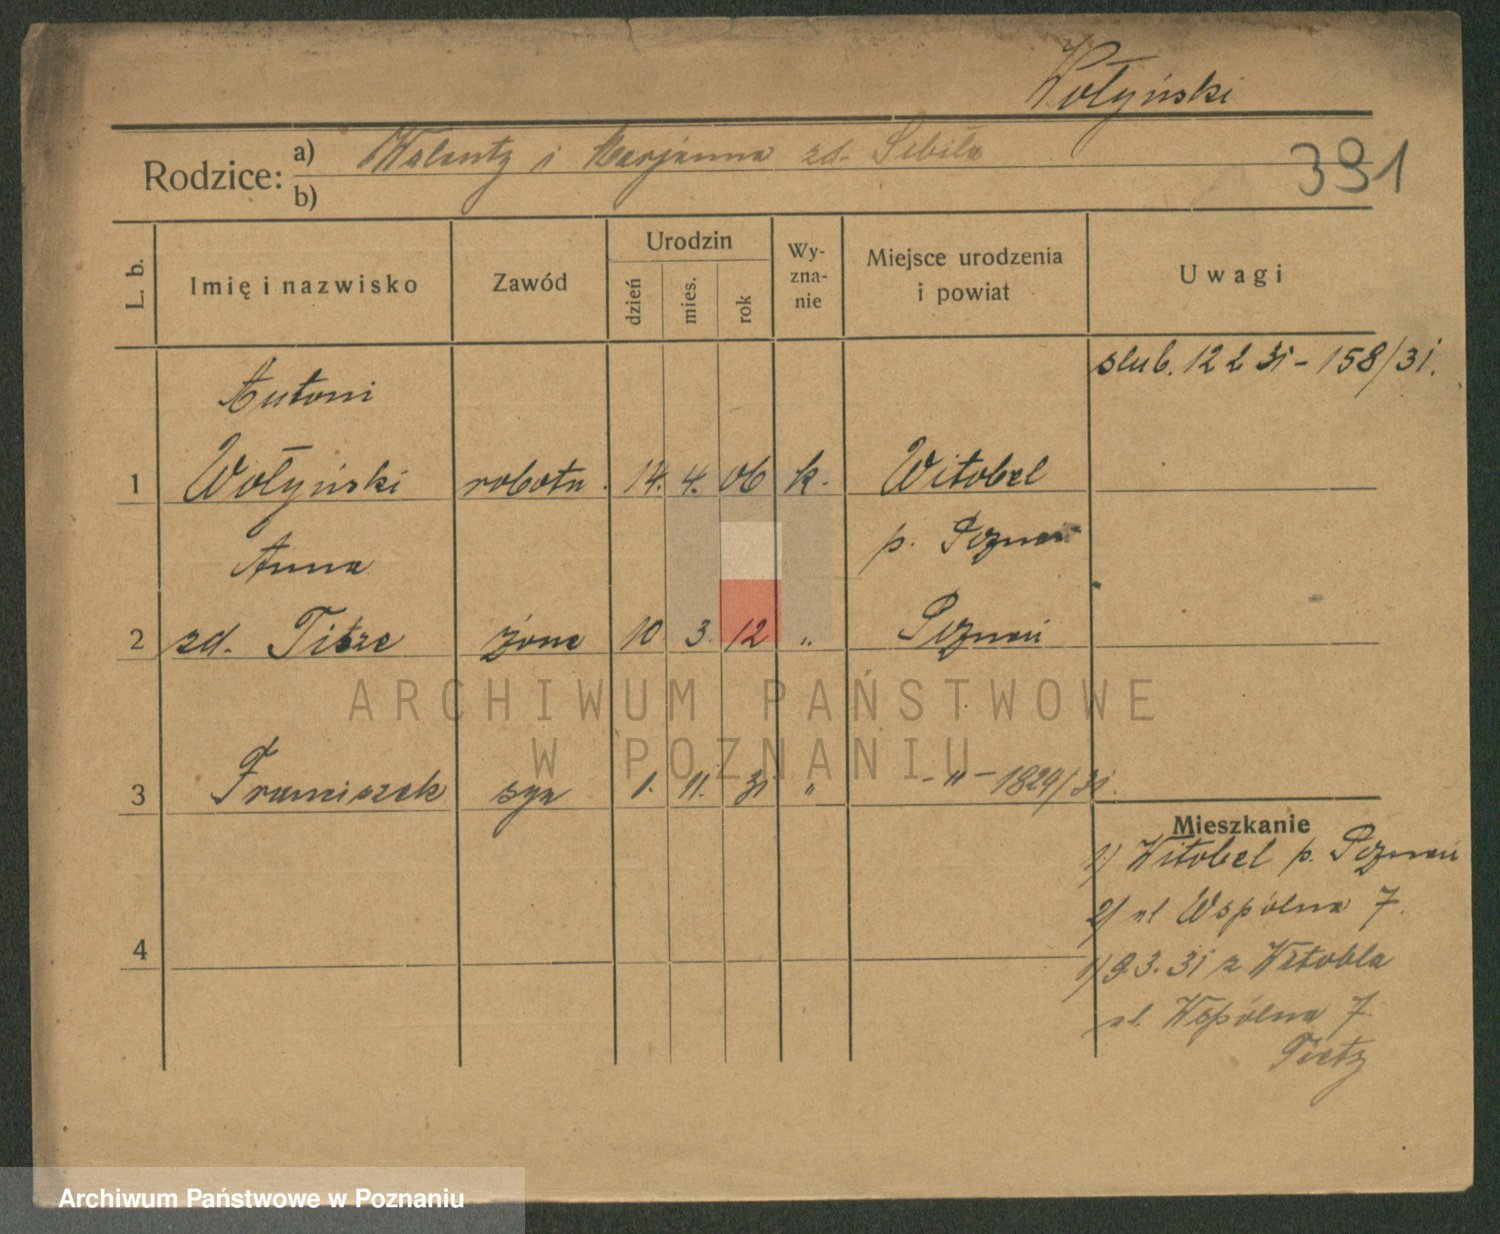 Wołyński
Rodzice: a) Walenty i Marjanna zd. Sebila
b)
391
L. b.
Imię i nazwisko
Zawód
Urodzin
dzień
mies.
rok
Wy-
zna-
nie
Miejsce urodzenia
i powiat
Uwagi
slub. 12 2 31 - 158/31.
Antoni
1 Wołyński robotn. 14. 4. 06 k. Witobel
p. Poznań
Anna
2 zd. Titze żona 10 3. 12 " Poznań
ARCHIWUM PAŃSTWOWE
W POZNANIU
3 Franciszek syn 1. 11. 31 " - " - 1824/31.
Mieszkanie
1) Witobel p. Poznań
2) ul Wspólna 7.
4
1) 9.3.31 z Witobla
ul. Wspólna 7.
Archiwum Państwowe w Poznaniu